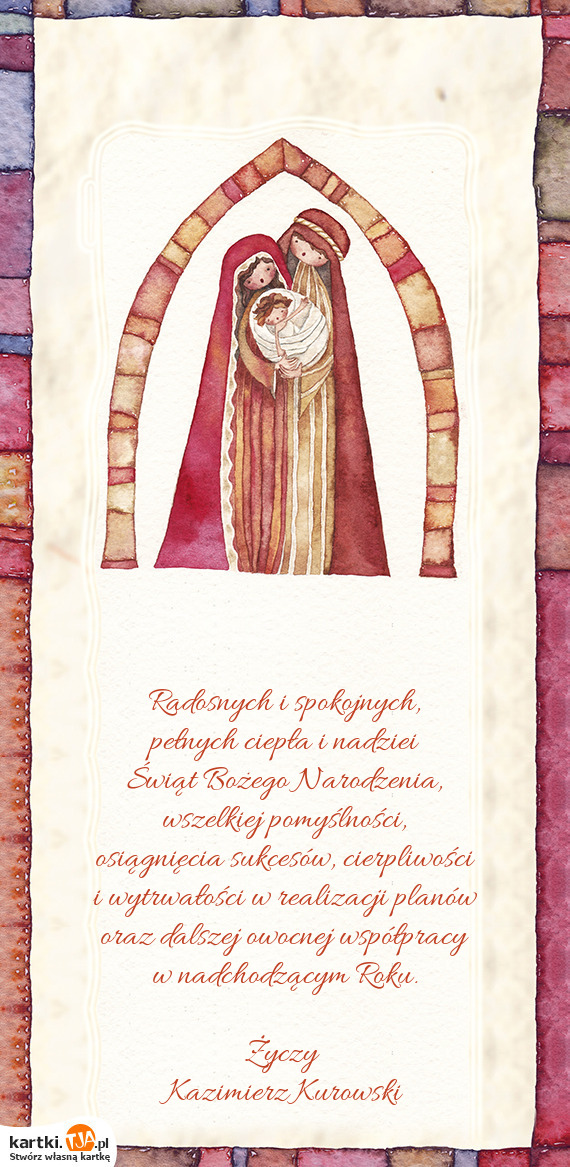 Radosnych i spokojnych,
pełnych ciepła i nadziei
Świąt Bożego Narodzenia,
wszelkiej pomyślności,
osiągnięcia sukcesów, cierpliwości
i wytrwałości w realizacji planów
oraz dalszej owocnej współpracy
w nadchodzącym Roku.
Życzy
Kazimierz Kurowski
kartki.TJA.pl
Stwórz własną kartkę